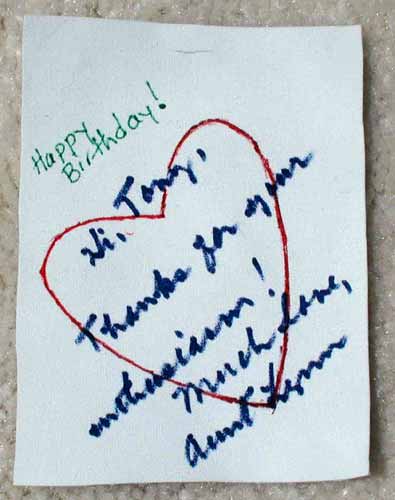 Happy
Birthday!
Hi, Tony,
Thanks for your
enthusiasm!
Much Love,
Aunt Lynn